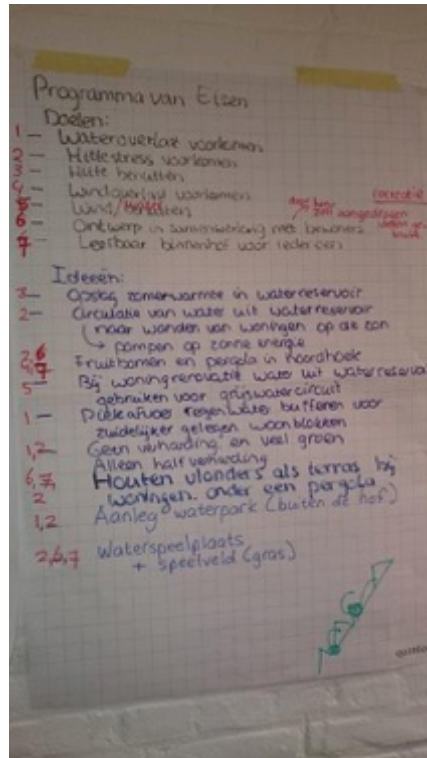 Programma van Eisen
Doelen:
1 - Wateroverlast voorkomen
2 - Hittestress voorkomen
3 - Hitte benutten
4 - Windoverlast voorkomen
5 - Wind/ benutten
6 - Ontwerp in samenwerking met bewoners
7 - Leefbaar binnenhof voor iedereen
door hen zelf aangedragen
Ideeën:
3 - Opslag zomerwarmte in waterreservoir
2 - Circulatie van water uit waterreservoir
naar wanden van woningen op de zon
↳ pompen op zonne energie
2,6 Fruitbomen en pergola in noordhoek
5 - Bij woningrenovatie water uit waterreservoir
gebruiken voor grijswatercircuit
1 - Piekafvoer regenwater bufferen voor
zuidelijker gelegen woonblokken
1,2 - Geen verharding en veel groen
Alleen halfverharding
6,7, Houten vlonders als terras bij
2 woningen. onder een pergola
1,2 Aanleg waterpark (buiten de hof)
2,6,7 Waterspeelplaats
+ speelveld (gras)